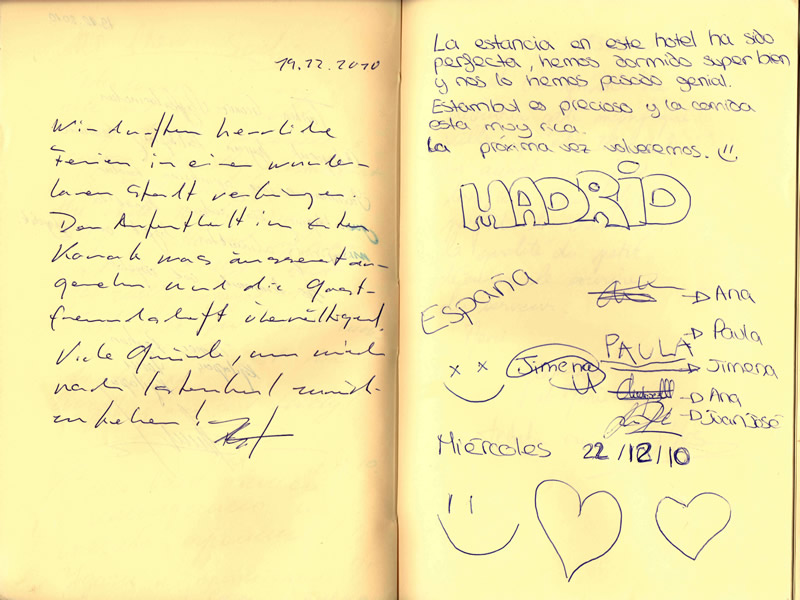 19.12.2010
Wir durften herrliche
Ferien in einer wunder-
baren Stadt verbringen.
Der Aufenthalt im
Konak was äusserst an-
genehm und die Gast-
freundschaft überwältigend.
Viele Gründe, um wieder
nach Istanbul zurück-
zukehren!
La estancia en este hotel ha sido
perfecta, hemos dormido super bien
y nos lo hemos pasado genial.
Estambul es precioso y la comida
esta muy rica.
La próxima vez volveremos.
MADRID
España
Ana
Paula
PAULA
Jimena
Jimena
Ana
Juan José
Miércoles 22/12/10